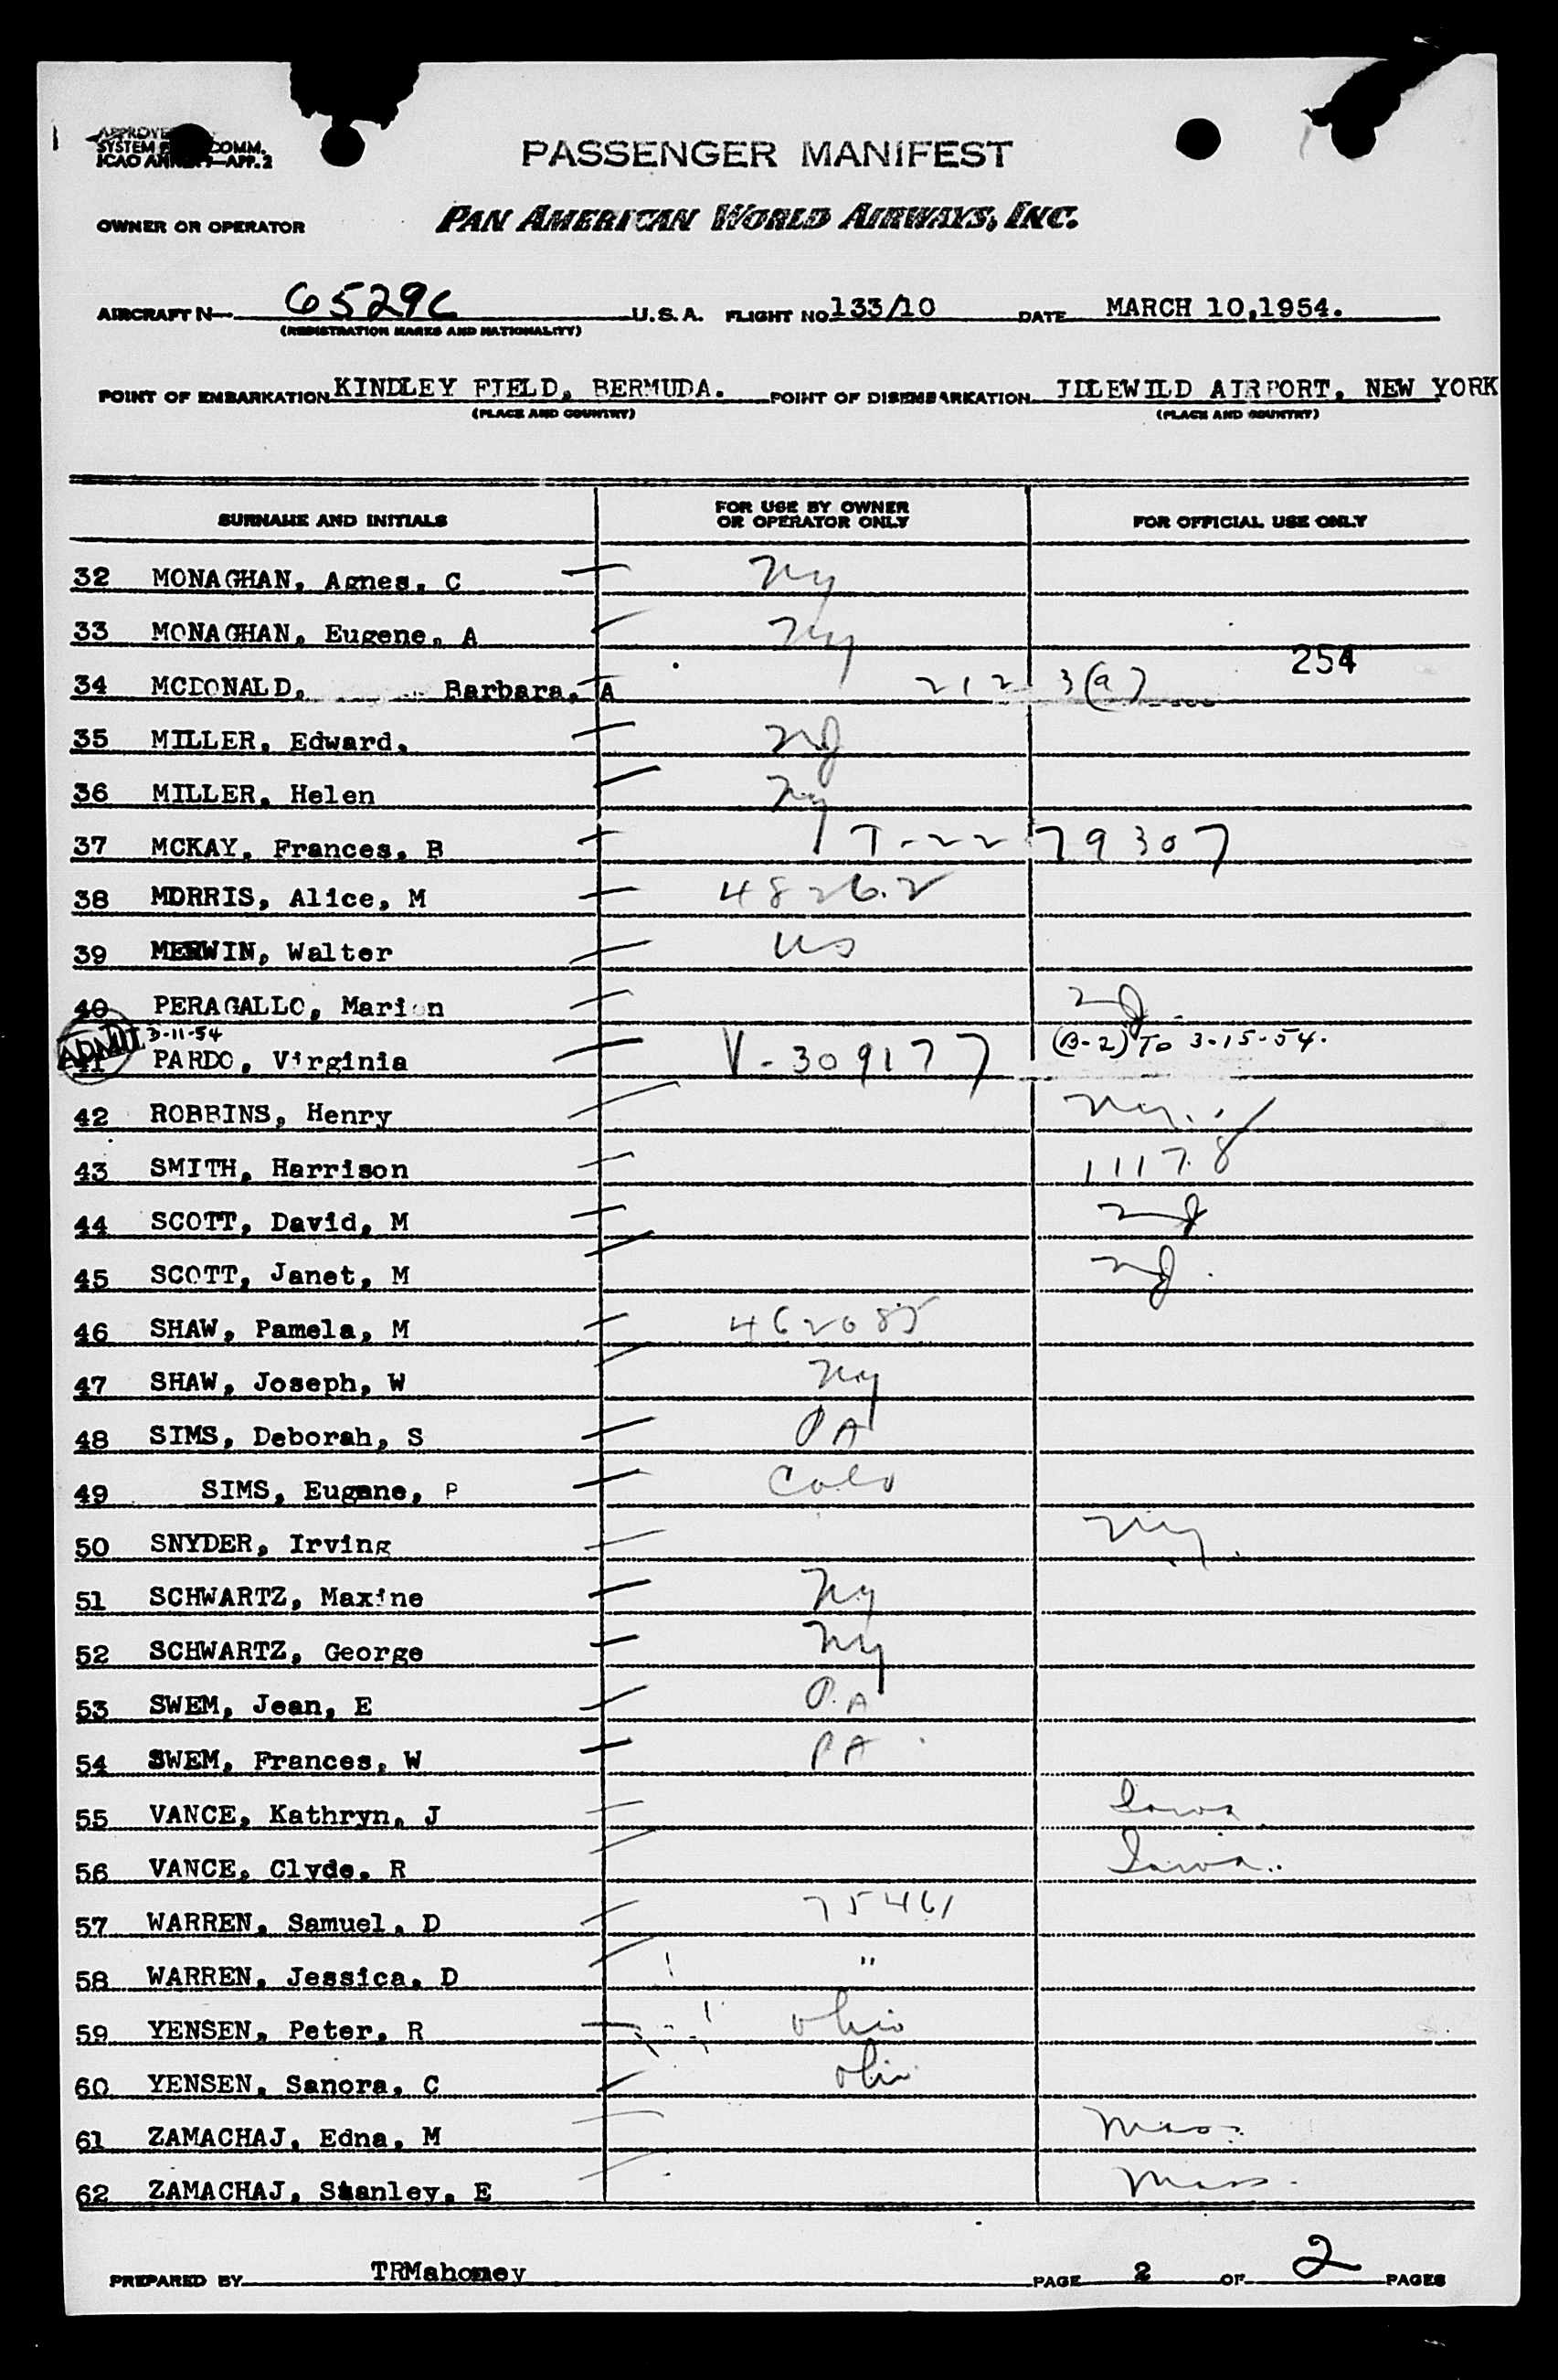 PASSENGER MANIFEST
OWNER OR OPERATOR PAN AMERICAN WORLD AIRWAYS, INC.
AIRCRAFT N 6529C U.S.A. FLIGHT NO 133/10 DATE MARCH 10,1954.
(REGISTRATION MARKS AND NATIONALITY)
POINT OF EMBARKATION KINDLEY FIELD, BERMUDA. POINT OF DISEMBARKATION IDLEWILD AIRPORT, NEW YORK
(PLACE AND COUNTRY) (PLACE AND COUNTRY)
SURNAME AND INITIALS FOR USE BY OWNER OR OPERATOR ONLY FOR OFFICIAL USE ONLY
32 MONAGHAN, Agnes, C Ny
33 MONAGHAN, Eugene, A Ny
254
34 MCDONALD, Barbara, A 212 3(a)
35 MILLER, Edward, NJ
36 MILLER, Helen Ny
37 MCKAY, Frances, B T-22 79307
38 MORRIS, Alice, M 4826.2
39 MERWIN, Walter US
40 PERAGALLO, Marion NJ
ADMIT 3-11-54 (B-2) To 3-15-54.
41 PARDO, Virginia V-309177
42 ROBBINS, Henry Ny.
43 SMITH, Harrison 1117.8
44 SCOTT, David, M NJ
45 SCOTT, Janet, M NJ.
46 SHAW, Pamela, M 462085
47 SHAW, Joseph, W Ny
48 SIMS, Deborah, S PA
49 SIMS, Eugene, P Colo
50 SNYDER, Irving Ny.
51 SCHWARTZ, Maxine Ny
52 SCHWARTZ, George Ny
53 SWEM, Jean, E P.A
54 SWEM, Frances, W PA
55 VANCE, Kathryn, J Iowa
56 VANCE, Clyde, R Iowa..
57 WARREN, Samuel, D 75461
58 WARREN, Jessica, D "
59 YENSEN, Peter, R Ohio
60 YENSEN, Sanora, C Ohio
61 ZAMACHAJ, Edna, M Mass.
62 ZAMACHAJ, Stanley, E Mass.
PREPARED BY TRMahoney PAGE 2 OF 2 PAGES